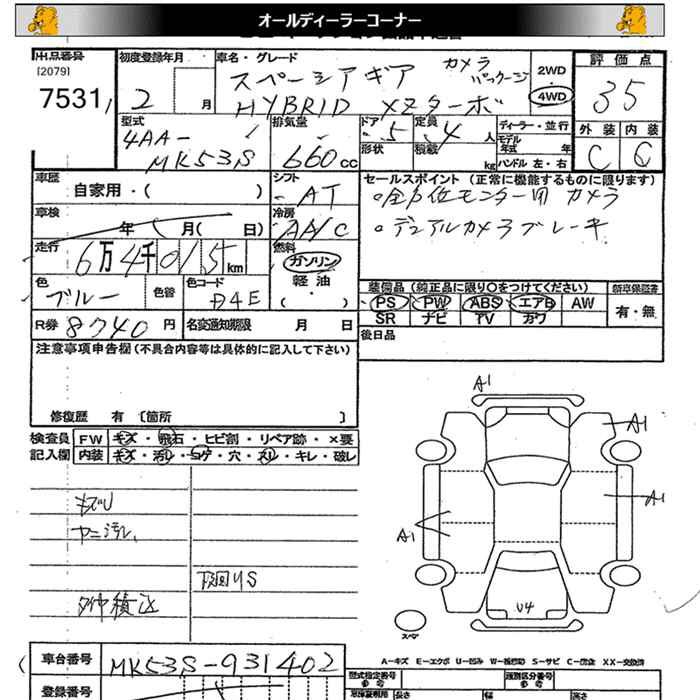 オールディーラーコーナー
出品番号
[2079]
7531
初度登録年月
2 月
車名・グレード
スペーシアギア カメラパッケージ
HYBRID Xzターボ
2WD
4WD
評価点
3.5
型式
4AA-
MK53S
排気量
660 cc
ドア
5
定員
4 人
形状
積載
kg
ディーラー・並行
モデル年式 年
ハンドル 左・右
外装 内装
C C
車歴
自家用・( )
シフト
AT
セールスポイント (正常に機能するものに限ります)
全方位モニター用 カメラ
デュアルカメラブレーキ
車検
年 月( 日)
冷房
AA/C
走行
6万4千015km
燃料
ガソリン
・
軽油
( )
色
ブルー
色替
色コード
R券 8740 円
名変通知期限 月 日
装備品 (純正品に限り○をつけてください)
新車保証書
PS PW ABS エアB AW
SR ナビ TV カワ
有・無
後日品
注意事項申告欄(不具合内容等は具体的に記入して下さい)
修復歴 有 [箇所 ]
検査員記入欄
FW キズ・飛石・ヒビ割・リペア跡・×要
内装 キズ・汚れ・コゲ・穴・スリ・キレ・破レ
ヤニ汚レ
下廻りS
A1
A1
A1
A1
U4
スペア
A-キズ E-エクボ U-凹み W-補修跡 S-サビ C-腐食 XX-交換済
車台番号
MK53S-931402
登録番号
型式指定番号
参考
類別区分番号
参考
長さ
幅
高さ